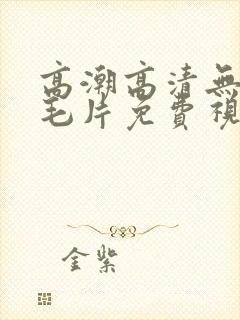 高潮高清無
毛片免費視
金紫